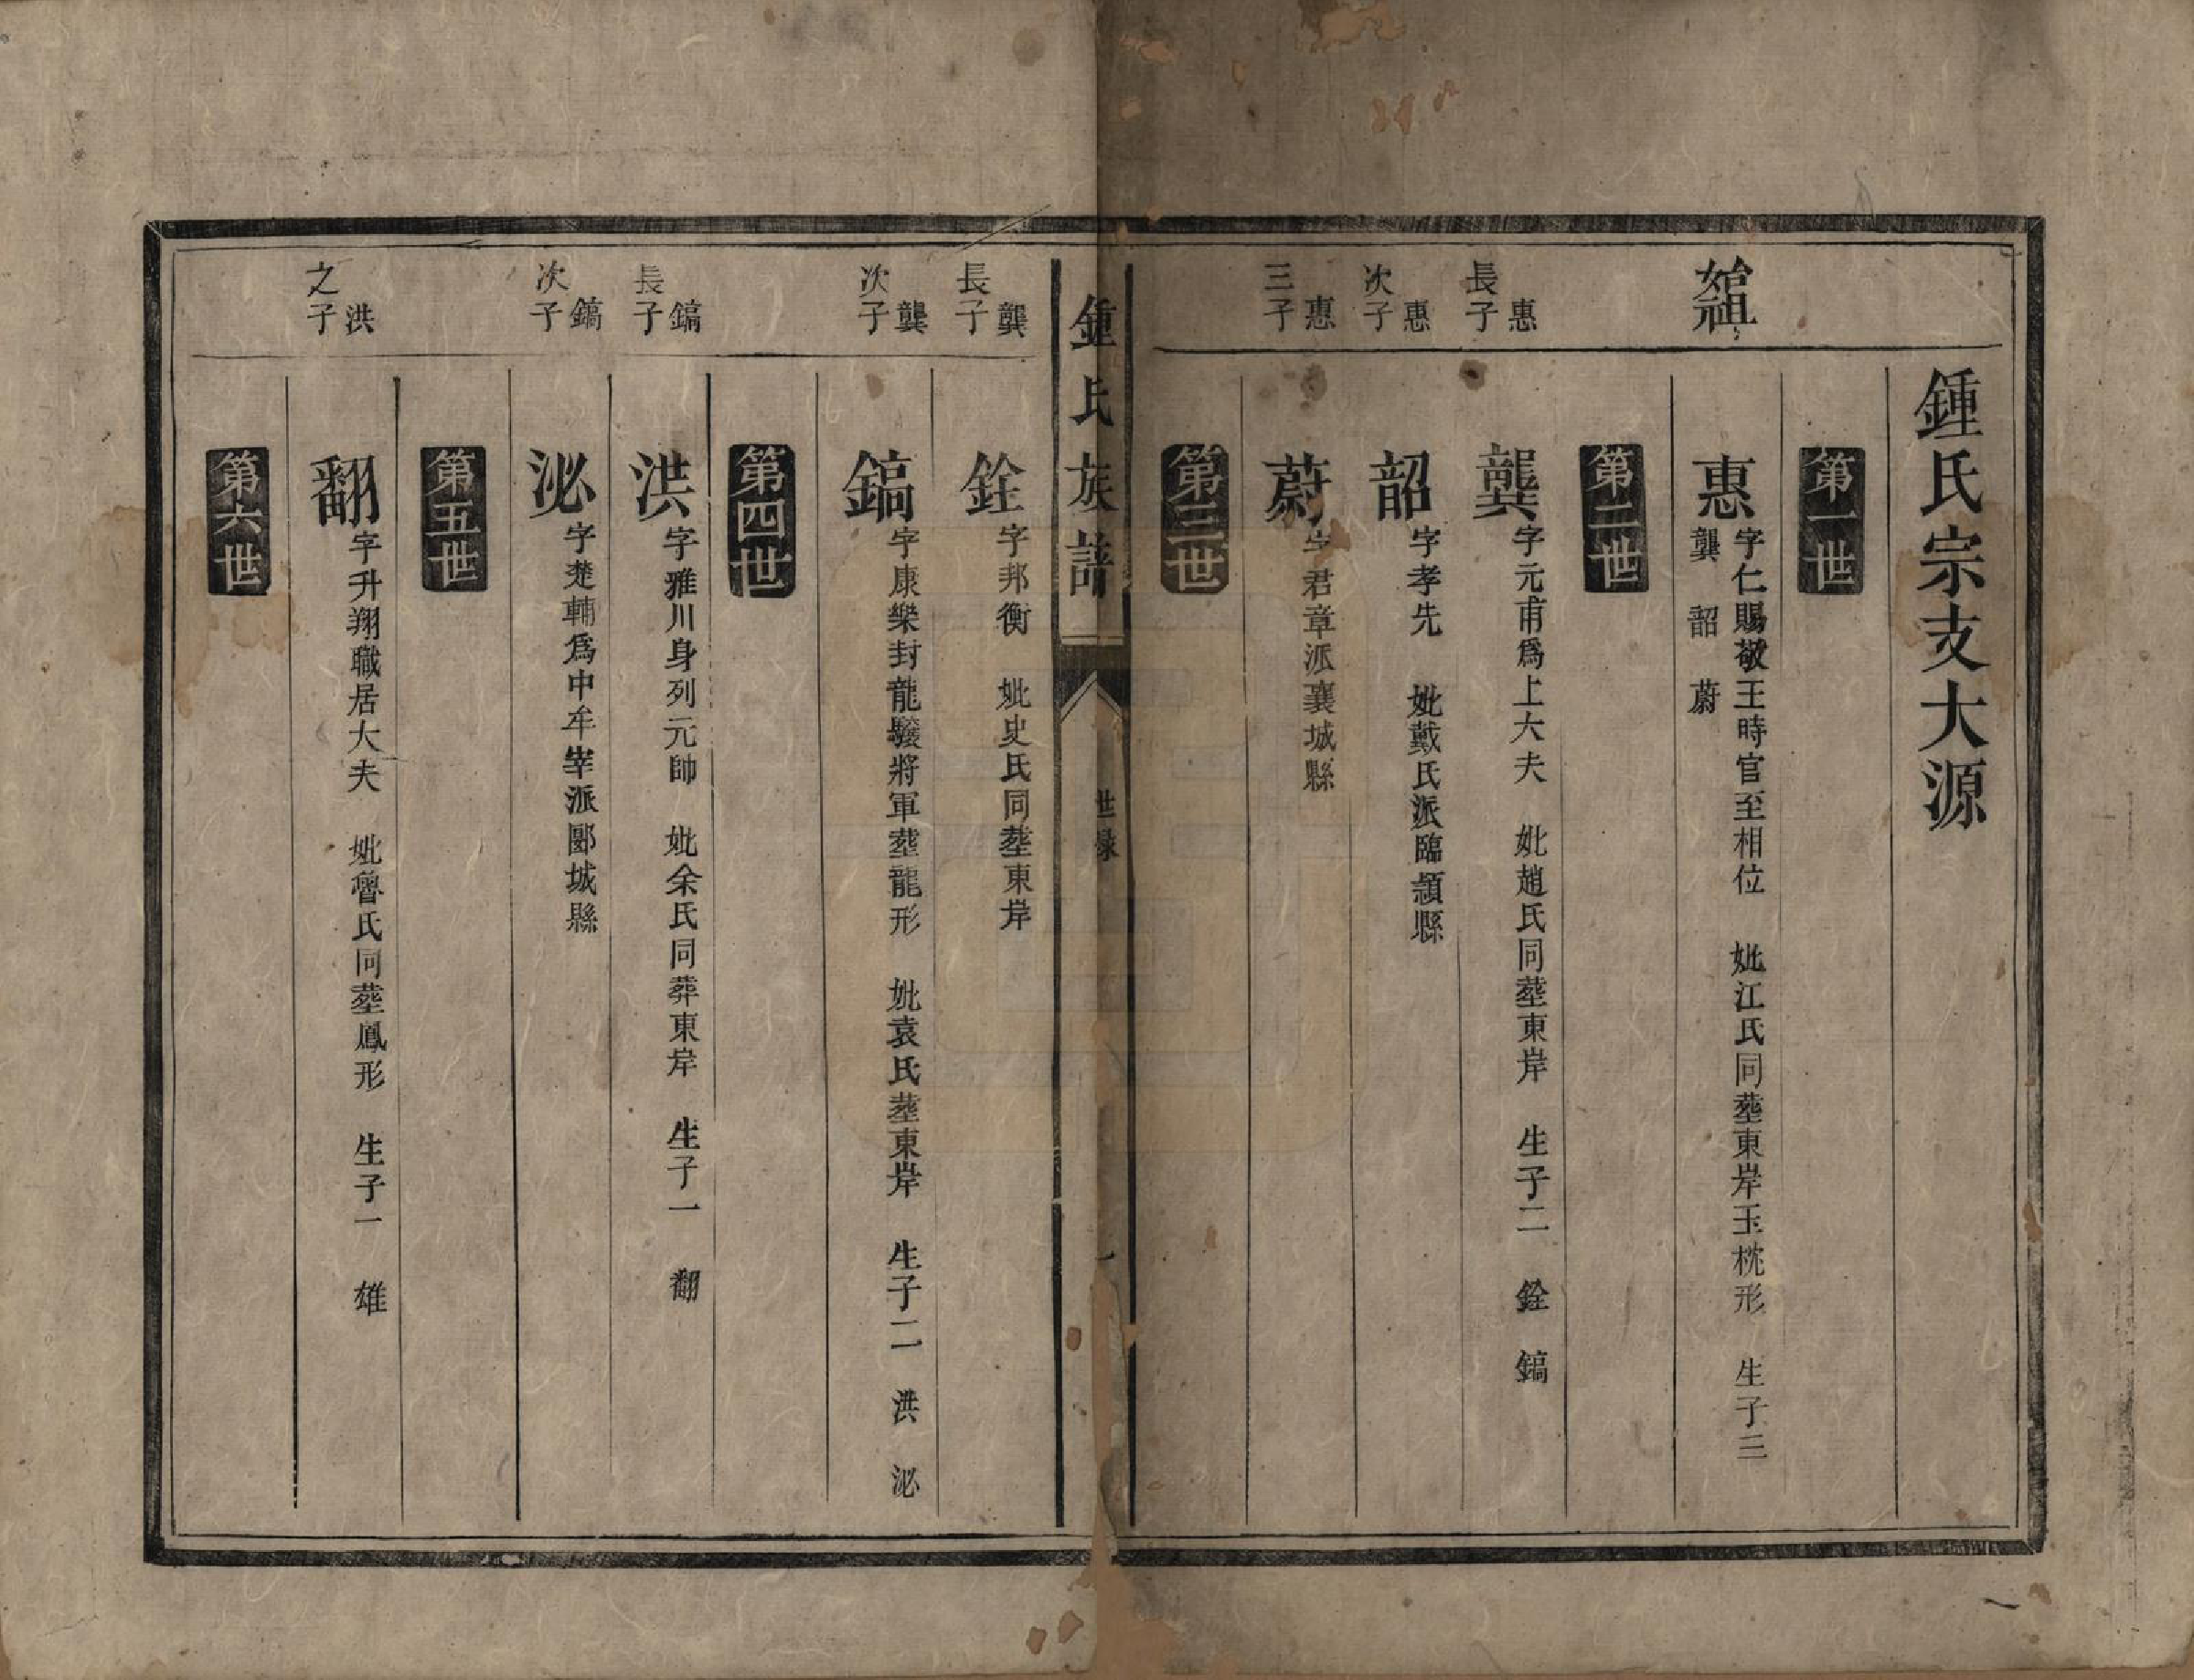 鍾氏宗支大源
第一世
始祖
惠 字仁賜敬王時官至相位 妣江氏同塟東岸玉枕形 生子三
龔 韶 蔚
第二世
惠長子
龔 字元甫爲上大夫 妣趙氏同塟東岸 生子二 銓 鎬
惠次子
韶 字孝先 妣戴氏派臨潁縣
惠三子
蔚 字君章派襄城縣
第三世
鍾氏族譜
世錄
龔長子
銓 字邦衡 妣史氏同塟東岸
龔次子
鎬 字康樂封龍驤將軍塟龍形 妣袁氏塟東岸 生子二 洪 泌
第四世
鎬長子
洪 字雅川身列元帥 妣余氏同葬東岸 生子一 翻
鎬次子
泌 字楚輔爲中牟宰派郾城縣
第五世
洪之子
翻 字升翔職居大夫 妣魯氏同塟鳳形 生子一 雄
第六世